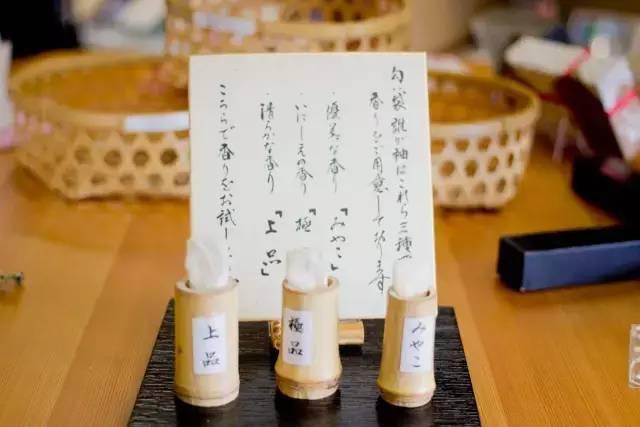 匂い袋 誰が袖はこれら三種の
香りをご用意しております
・優美な香り 「みやこ」
・いにしえの香り 「極
・清らかな香り 「上品」
こちらで香りをお試し
上品
極品
みやこ